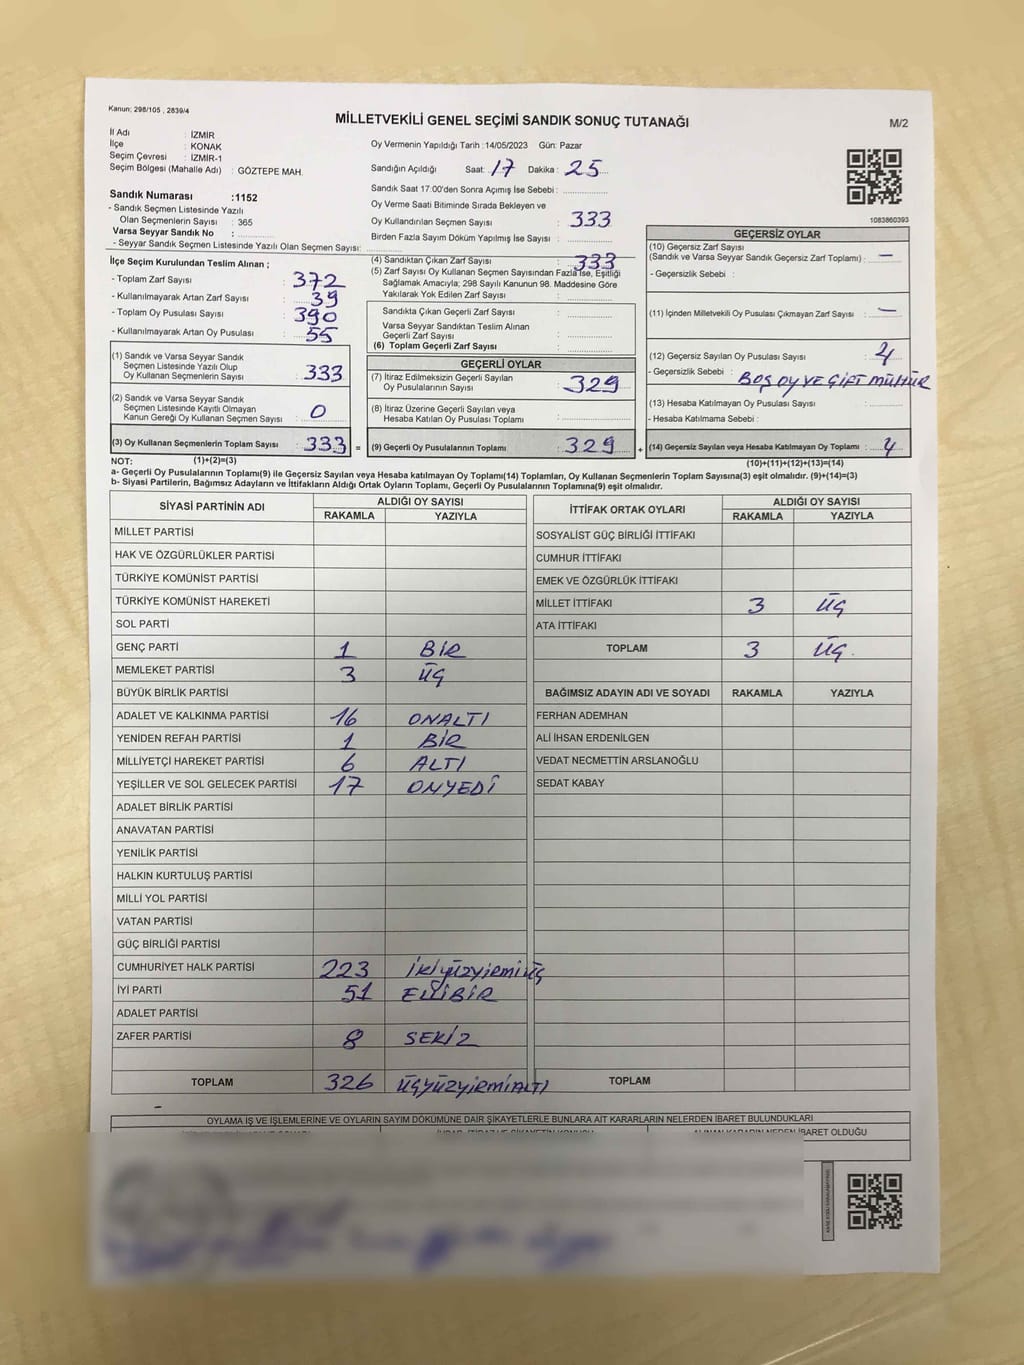 Kanun; 298/105 , 2839/4
MİLLETVEKİLİ GENEL SEÇİMİ SANDIK SONUÇ TUTANAĞI
M/2
İl Adı : İZMİR
İlçe : KONAK
Seçim Çevresi : İZMİR-1
Seçim Bölgesi (Mahalle Adı) : GÖZTEPE MAH.
Sandık Numarası :1152
- Sandık Seçmen Listesinde Yazılı
Olan Seçmenlerin Sayısı : 365
Varsa Seyyar Sandık No :
- Seyyar Sandık Seçmen Listesinde Yazılı Olan Seçmen Sayısı:
Oy Vermenin Yapıldığı Tarih :14/05/2023 Gün: Pazar
Sandığın Açıldığı Saat: 17 Dakika: 25
Sandık Saat 17:00'den Sonra Açımış İse Sebebi :
Oy Verme Saati Bitiminde Sırada Bekleyen ve
Oy Kullandırılan Seçmen Sayısı : 333
Birden Fazla Sayım Döküm Yapılmış İse Sayısı :
1083860393
İlçe Seçim Kurulundan Teslim Alınan ;
- Toplam Zarf Sayısı : 372
- Kullanılmayarak Artan Zarf Sayısı : 39
- Toplam Oy Pusulası Sayısı : 390
- Kullanılmayarak Artan Oy Pusulası : 55
(1) Sandık ve Varsa Seyyar Sandık
Seçmen Listesinde Yazılı Olup
Oy Kullanan Seçmenlerin Sayısı : 333
(2) Sandık ve Varsa Seyyar Sandık
Seçmen Listesinde Kayıtlı Olmayan
Kanun Gereği Oy Kullanan Seçmen Sayısı : 0
(3) Oy Kullanan Seçmenlerin Toplam Sayısı : 333 =
(4) Sandıktan Çıkan Zarf Sayısı : 333
(5) Zarf Sayısı Oy Kullanan Seçmen Sayısından Fazla İse, Eşitliği
Sağlamak Amacıyla; 298 Sayılı Kanunun 98. Maddesine Göre
Yakılarak Yok Edilen Zarf Sayısı :
Sandıkta Çıkan Geçerli Zarf Sayısı :
Varsa Seyyar Sandıktan Teslim Alınan
Geçerli Zarf Sayısı :
(6) Toplam Geçerli Zarf Sayısı :
GEÇERLİ OYLAR
(7) İtiraz Edilmeksizin Geçerli Sayılan
Oy Pusulalarının Sayısı : 329
(8) İtiraz Üzerine Geçerli Sayılan veya
Hesaba Katılan Oy Pusulası Toplamı :
(9) Geçerli Oy Pusulalarının Toplamı : 329 +
GEÇERSİZ OYLAR
(10) Geçersiz Zarf Sayısı
(Sandık ve Varsa Seyyar Sandık Geçersiz Zarf Toplamı) : —
- Geçersizlik Sebebi :
(11) İçinden Milletvekili Oy Pusulası Çıkmayan Zarf Sayısı : —
(12) Geçersiz Sayılan Oy Pusulası Sayısı : 4
- Geçersizlik Sebebi : BOŞ OY VE ÇİFT MÜHÜR
(13) Hesaba Katılmayan Oy Pusulası Sayısı :
- Hesaba Katılmama Sebebi :
(14) Geçersiz Sayılan veya Hesaba Katılmayan Oy Toplamı : 4
NOT: (1)+(2)=(3)
(10)+(11)+(12)+(13)=(14)
a- Geçerli Oy Pusulalarının Toplamı(9) ile Geçersiz Sayılan veya Hesaba katılmayan Oy Toplamı(14) Toplamları, Oy Kullanan Seçmenlerin Toplam Sayısına(3) eşit olmalıdır. (9)+(14)=(3)
b- Siyasi Partilerin, Bağımsız Adayların ve İttifakların Aldığı Ortak Oyların Toplamı, Geçerli Oy Pusulalarının Toplamına(9) eşit olmalıdır.
SİYASİ PARTİNİN ADI
ALDIĞI OY SAYISI
RAKAMLA YAZIYLA
MİLLET PARTİSİ
HAK VE ÖZGÜRLÜKLER PARTİSİ
TÜRKİYE KOMÜNİST PARTİSİ
TÜRKİYE KOMÜNİST HAREKETİ
SOL PARTİ
GENÇ PARTİ 1 BİR
MEMLEKET PARTİSİ 3 ÜÇ
BÜYÜK BİRLİK PARTİSİ
ADALET VE KALKINMA PARTİSİ 16 ONALTI
YENİDEN REFAH PARTİSİ 1 BİR
MİLLİYETÇİ HAREKET PARTİSİ 6 ALTI
YEŞİLLER VE SOL GELECEK PARTİSİ 17 ONYEDİ
ADALET BİRLİK PARTİSİ
ANAVATAN PARTİSİ
YENİLİK PARTİSİ
HALKIN KURTULUŞ PARTİSİ
MİLLİ YOL PARTİSİ
VATAN PARTİSİ
GÜÇ BİRLİĞİ PARTİSİ
CUMHURİYET HALK PARTİSİ 223 İKİYÜZYİRMİÜÇ
İYİ PARTİ 51 ELLİBİR
ADALET PARTİSİ
ZAFER PARTİSİ 8 SEKİZ
TOPLAM 326 ÜÇYÜZYİRMİALTI
İTTİFAK ORTAK OYLARI
ALDIĞI OY SAYISI
RAKAMLA YAZIYLA
SOSYALİST GÜÇ BİRLİĞİ İTTİFAKI
CUMHUR İTTİFAKI
EMEK VE ÖZGÜRLÜK İTTİFAKI
MİLLET İTTİFAKI 3 ÜÇ
ATA İTTİFAKI
TOPLAM 3 ÜÇ.
BAĞIMSIZ ADAYIN ADI VE SOYADI RAKAMLA YAZIYLA
FERHAN ADEMHAN
ALİ İHSAN ERDENİLGEN
VEDAT NECMETTİN ARSLANOĞLU
SEDAT KABAY
TOPLAM
OYLAMA İŞ VE İŞLEMLERİNE VE OYLARIN SAYIM DÖKÜMÜNE DAİR ŞİKAYETLERLE BUNLARA AİT KARARLARIN NELERDEN İBARET BULUNDUKLARI
ALINAN KARARIN NEDEN İBARET OLDUĞU